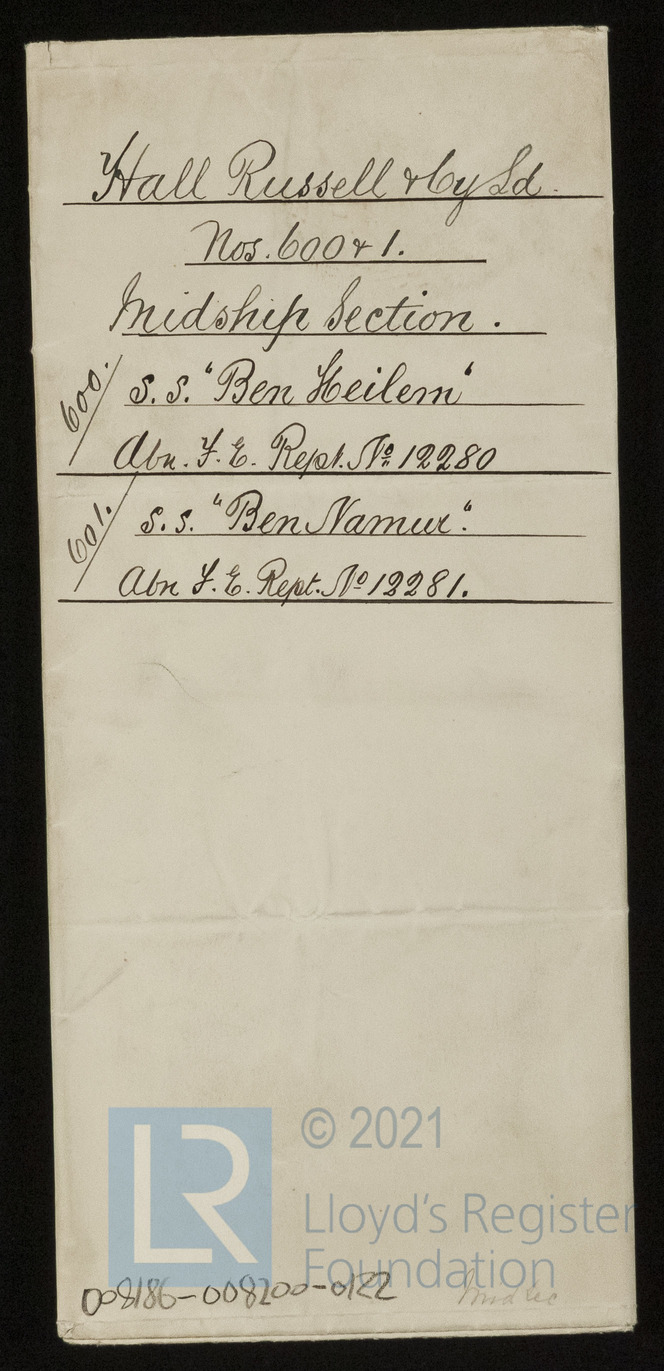 Hall Russell & Cy Ld.
Nos. 600 & 1.
Midship Section.
600.
s.s. "Ben Heilem"
Abn. F. E. Rept. No 12280
601.
s.s. "Ben Namur".
Abn F. E. Rept. No 12281.
© 2021
LR
Lloyd's Register
Foundation
008186-008200-0122
Mid sec